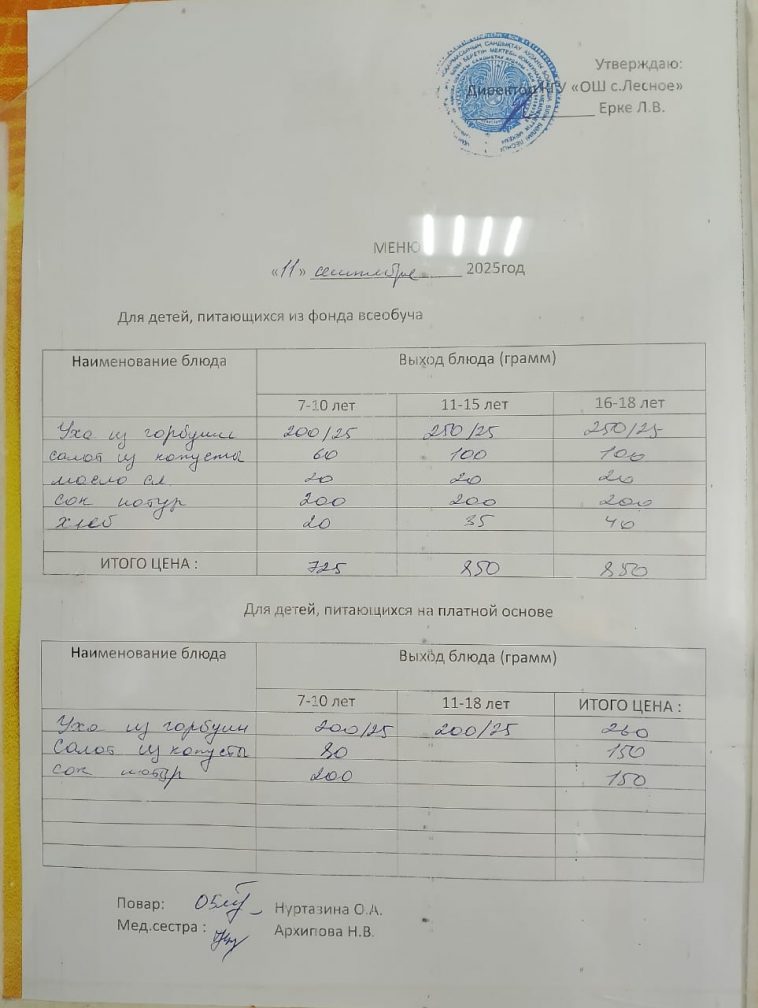 Утверждаю:
Директор КГУ «ОШ с.Лесное»
Ерке Л.В.
МЕНЮ
«11» сентября 2025год
Для детей, питающихся из фонда всеобуча
Наименование блюда Выход блюда (грамм)
7-10 лет 11-15 лет 16-18 лет
Уха из горбуши 200/25 250/25 250/25
салат из капусты 60 100 100
масло сл. 20 20 20
сок натур 200 200 200
хлеб 20 35 40
ИТОГО ЦЕНА : 725 850 850
Для детей, питающихся на платной основе
Наименование блюда Выход блюда (грамм)
7-10 лет 11-18 лет ИТОГО ЦЕНА :
Уха из горбуши 200/25 200/25 260
Салат из капусты 80 150
сок натур 200 150
Повар: Нуртазина О.А.
Мед.сестра : Архипова Н.В.